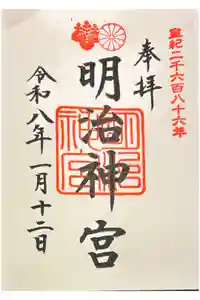 皇紀二千六百八十六年
奉拝
明治神宮
令和八年一月十二日